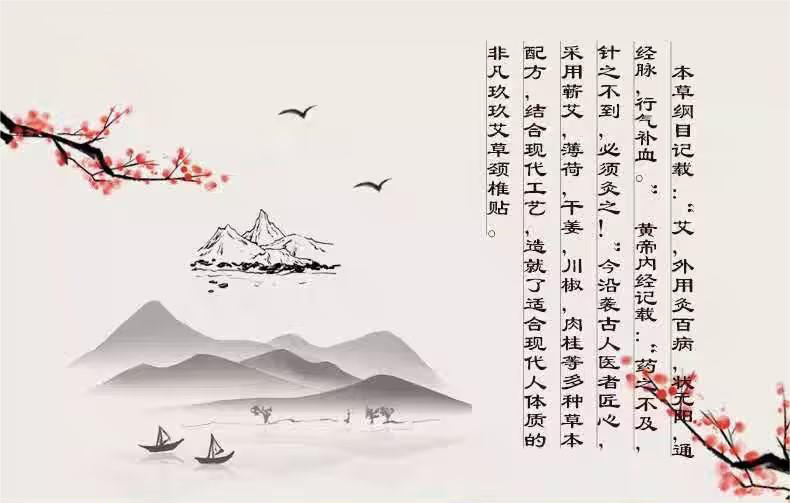 本草纲目记载：“艾，外用灸百病，状元阳，通
经脉，行气补血。” 黄帝内经记载：“药之不及，
针之不到，必须灸之！”今沿袭古人医者匠心，
采用蕲艾，薄荷，干姜，川椒，肉桂等多种草本
配方，结合现代工艺，造就了适合现代人体质的
非凡玖玖艾草颈椎贴。